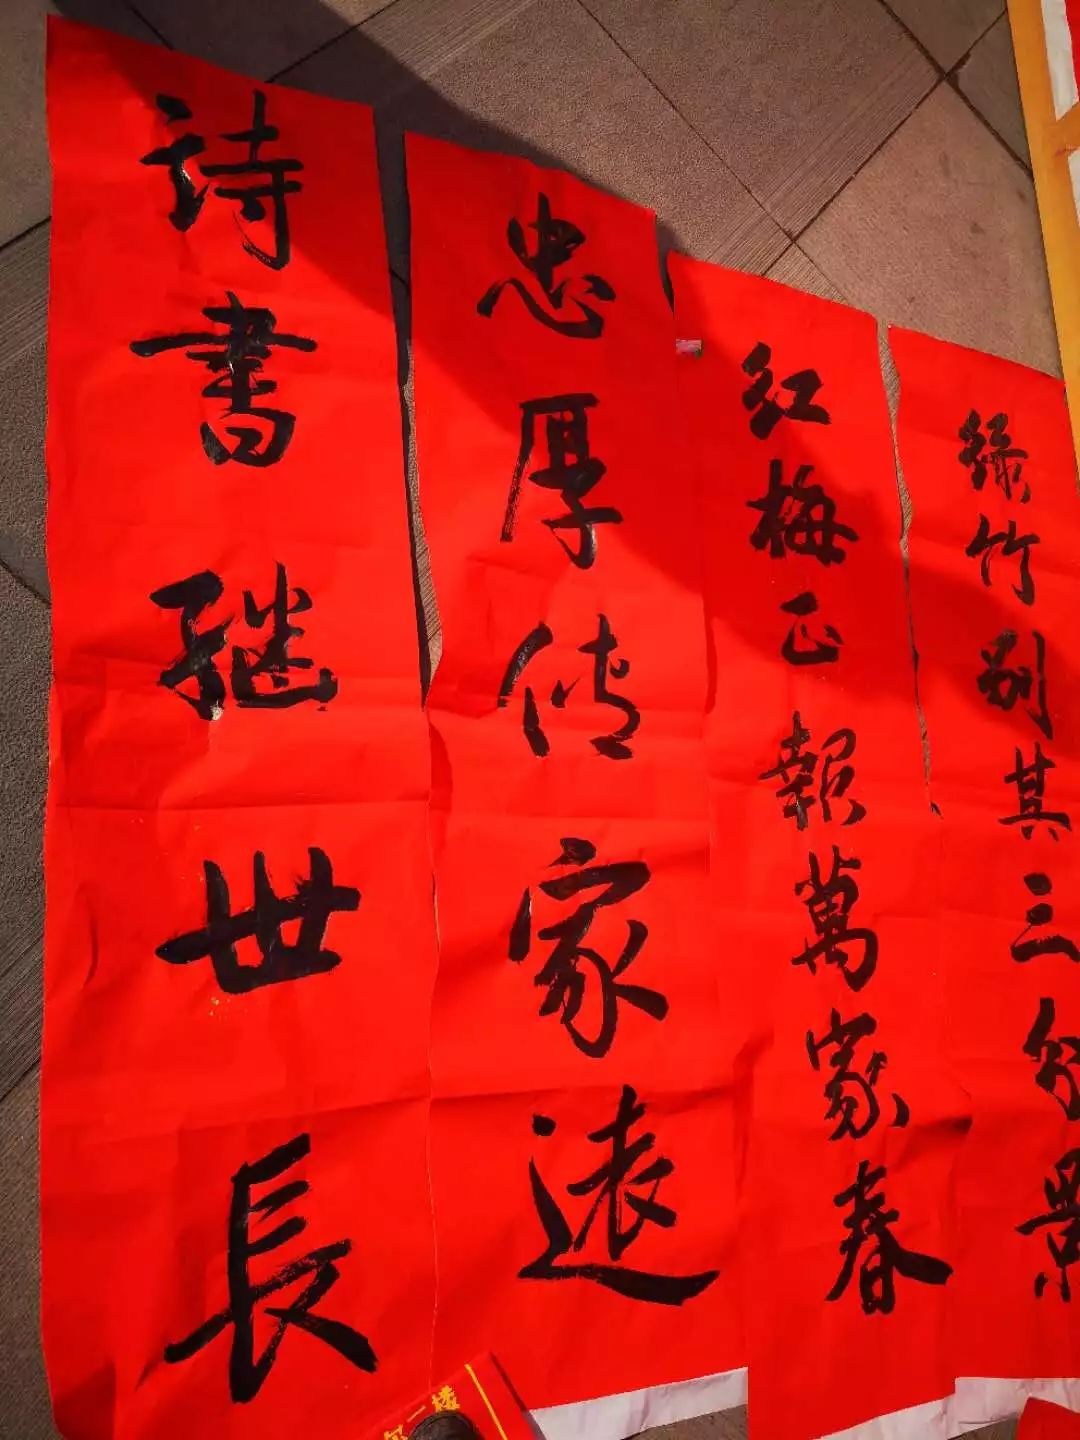 綠竹別其三分景
紅梅正報萬家春
忠厚傳家遠
詩書繼世長
二楼